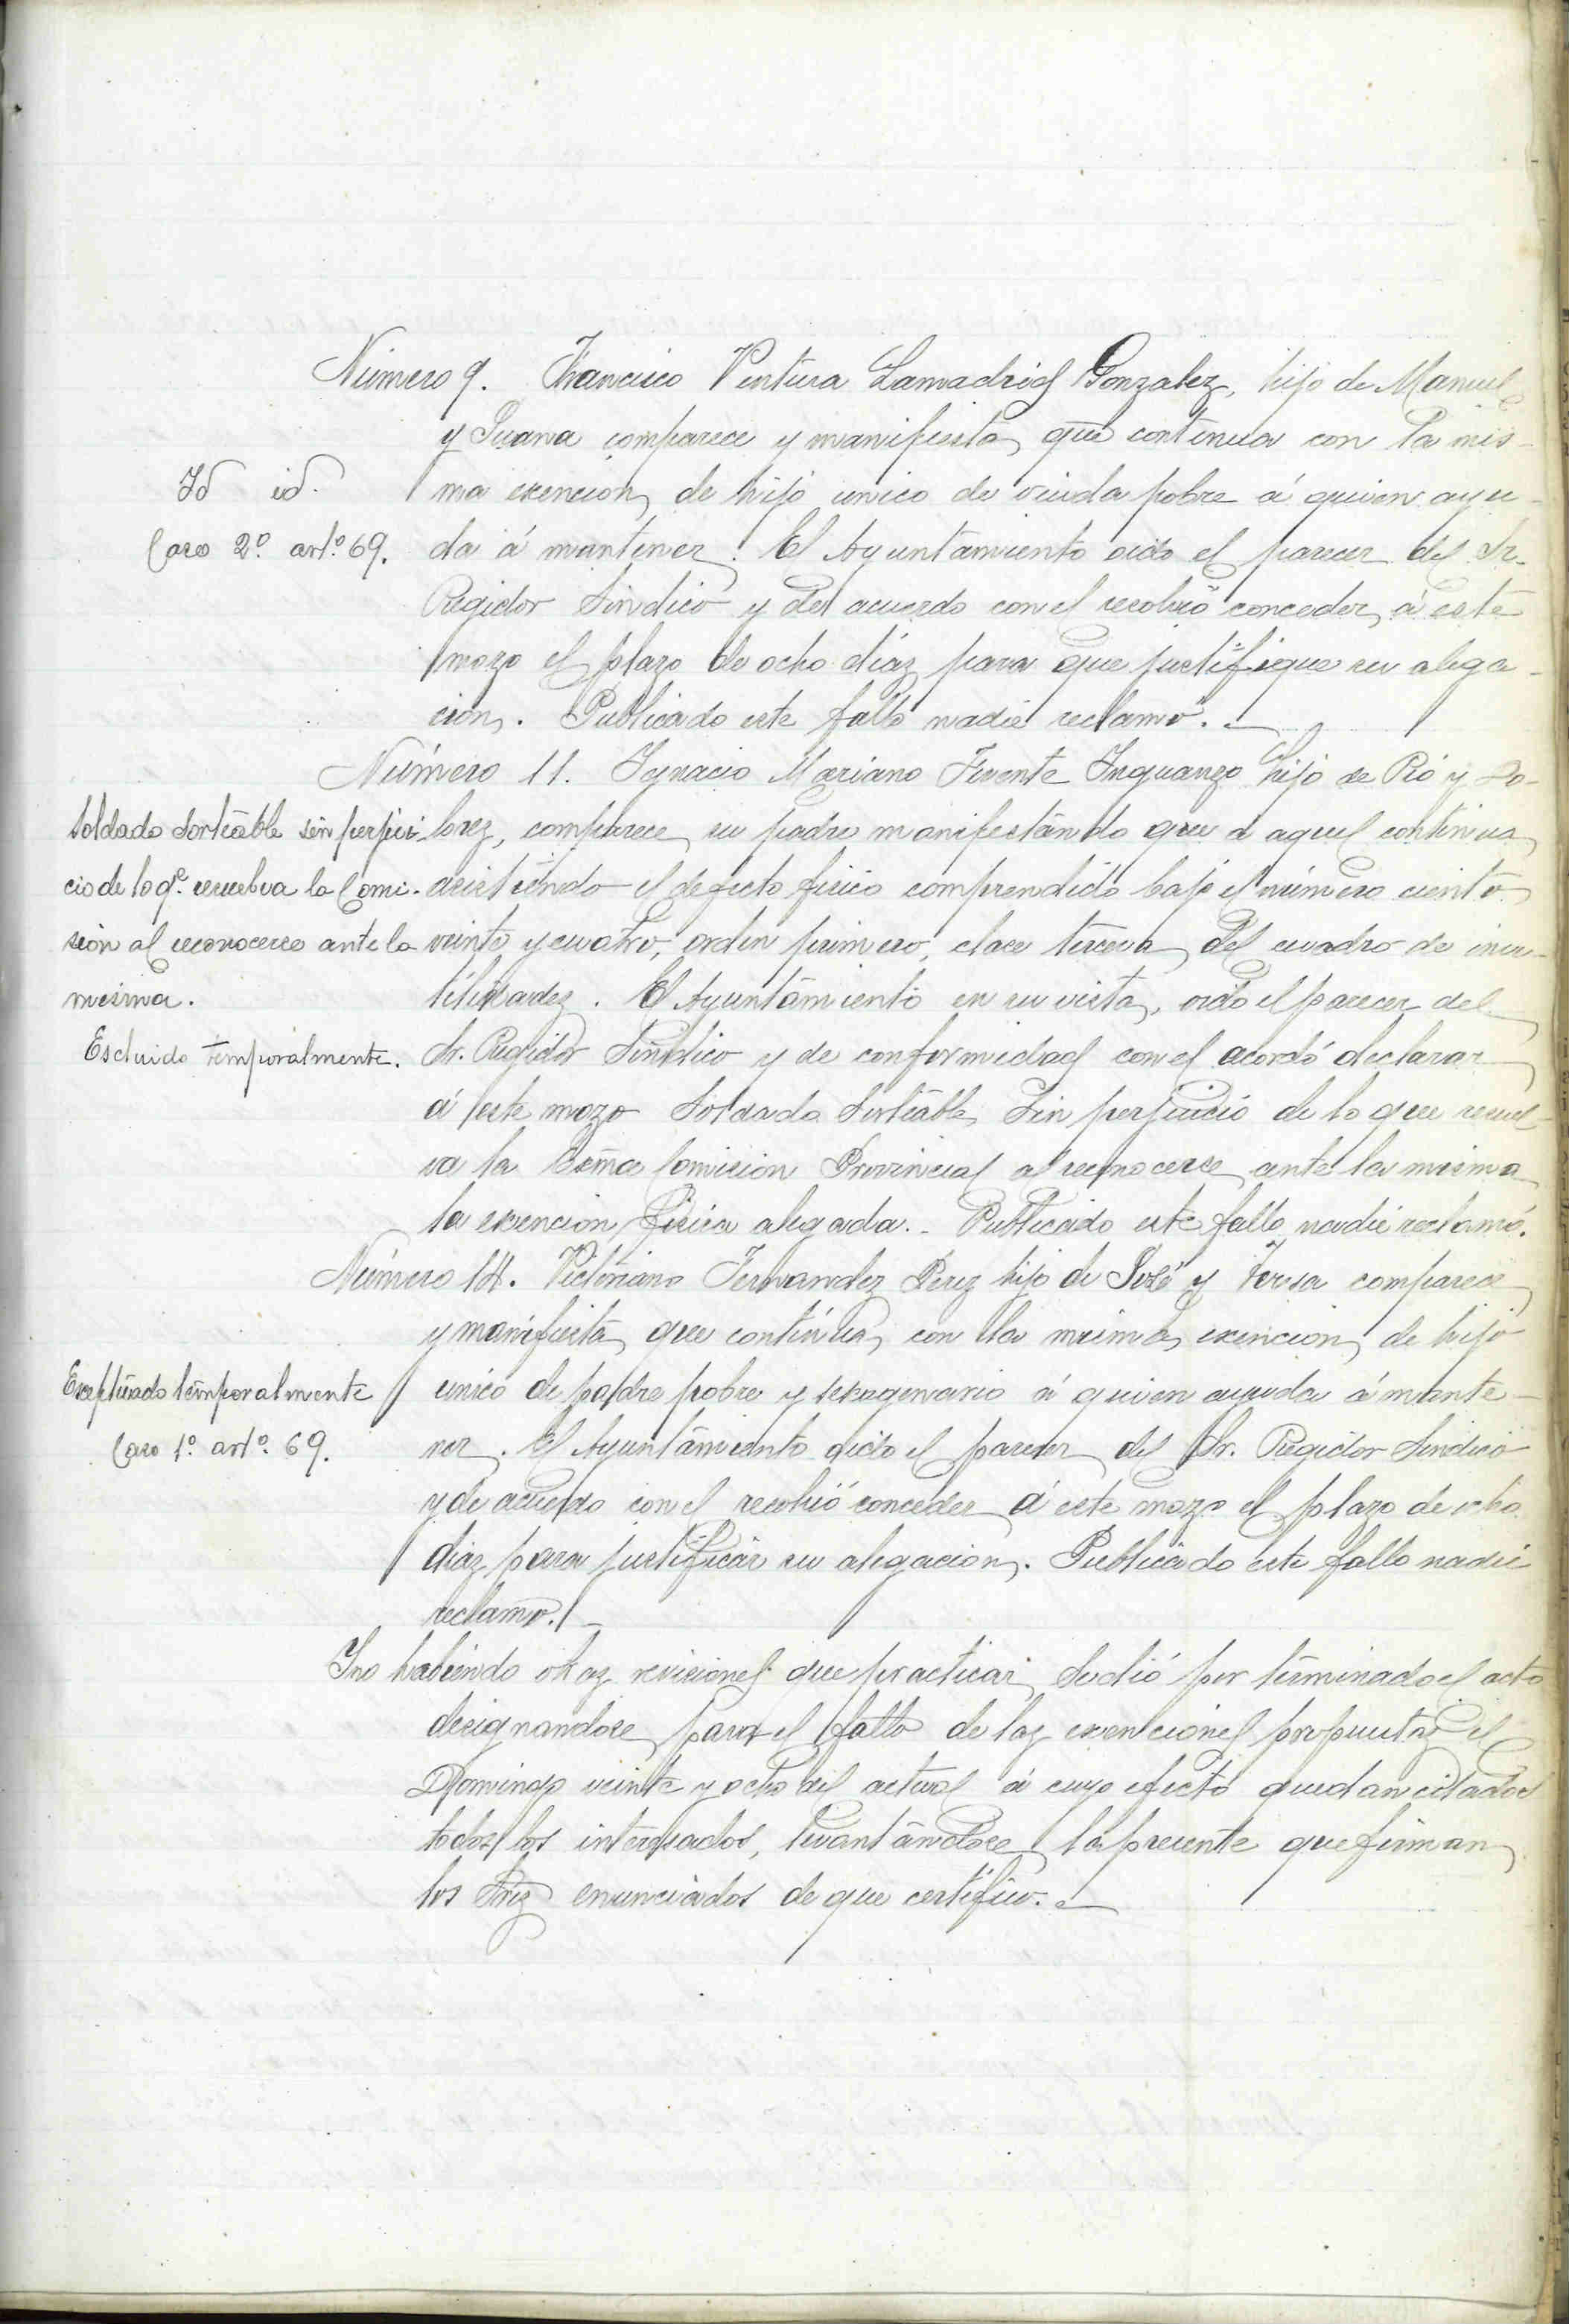 Número 9. Francisco Ventura Lamadrid Gonzalez, hijo de Manuel
y Juana comparece y manifiesta que continua con la mis-
Id id.
ma exencion de hijo unico de viuda pobre á quien ayu-
Caso 2º artº 69.
da á mantener. El Ayuntamiento oido el parecer del Sr.
Regidor Sindico y de acuerdo con el resolvió conceder á este
mozo el plazo de ocho diaz para que justifique su alega-
cion. Publicado este fallo nadie reclamó.
Número 11. Ignacio Mariano Fuente Inguanzo hijo de Pió y Do-
Soldado Sorteable sin perjui-
lorez, comparece su padre manifestando que á aquel continua
cio de lo qe. resuelva la Comi-
asistiendo el defecto fisico comprendido bajo el número ciento
sión al reconocerse ante la
veinte y cuatro, orden primero, clase tercera del cuadro de inu-
mesima.
tilidadez. El Ayuntamiento en su vista, oido el parecer del
Escluido temporalmente.
Sr. Regidor Sindico y de conformidad con el acordó declarar
á este mozo Soldado Sorteable Sin perjuicio de lo que resuel-
va la Exma Comision Provincial al reconocerse ante la misma
la exencion fisica alegada. Publicado este fallo nadie reclamó.
Número 14. Victoriano Fernandez Perez hijo de José y Teresa comparece
y manifiesta que continua con la misma exencion de hijo
Exceptuado temporalmente
unico de padre pobre y sexagenario á quien ayuda á mante-
Caso 1º artº. 69.
ner. El Ayuntamiento oido el parecer del Sr. Regidor Sindico
y de acuerdo con el resolvió conceder á este mozo el plazo de ocho
diaz para justificar su alegacion. Publicado este fallo nadie
reclamo.
Y no habiendo otraz revisiones que practicar, Se dió por terminado el acto
designandose para el fallo de laz exenciones propuestaz el
Domingo veinte y ocho del actual á cuyo efecto quedan citados
todos los interesados, levantándose la presente que firman
los Srez enunciados de que certifico.